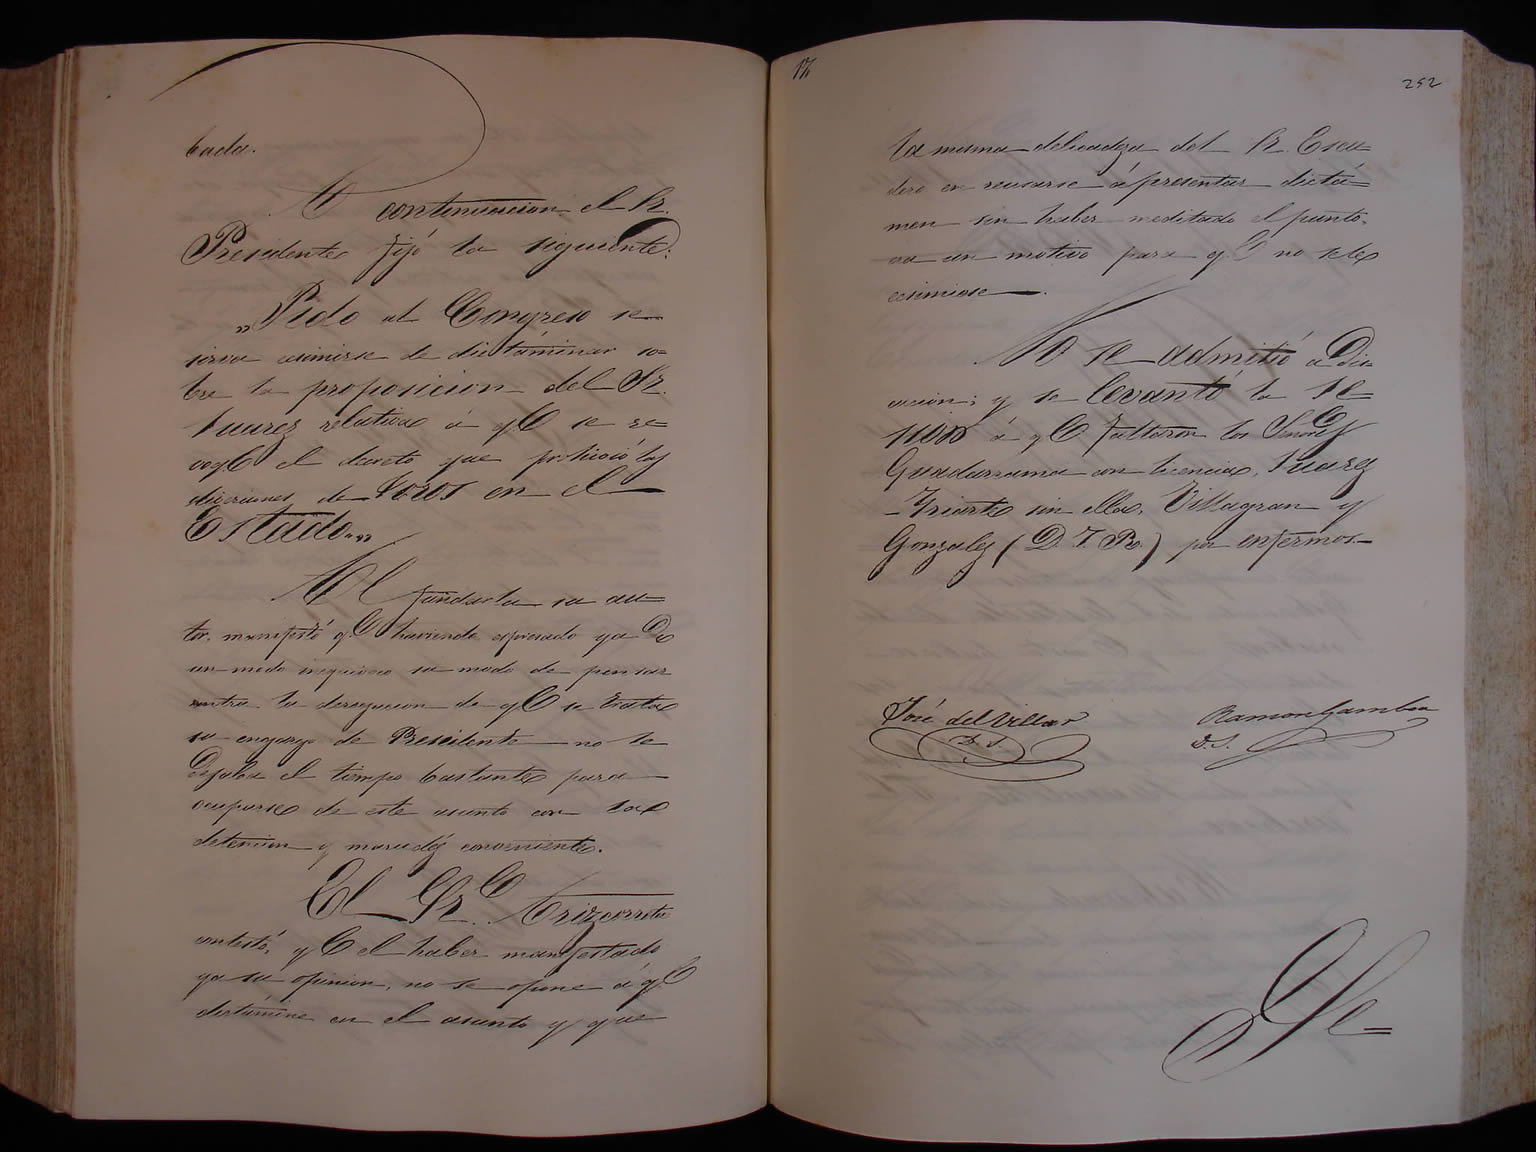 bada.
A continuacion el Sr.
Presidente fijó la siguiente:
„Pido al Congreso se
sirva ecsimirse de dictáminar so-
bre la proposicion del Sr.
Suarez relativa á qe se re-
voqe el decreto que prohivió las
diverciones de Toros en el
Estado.„
Al fundarla su au-
tor, manifestó qe haviendo espresado ya de
un modo inequivoco su modo de pensar
contra la derogacion de qe se trata
su encargo de Presidente no le
dejaba el tiempo bastante para
ocuparse de este asunto con la
detencion y marudéz conveniente.
El Sr. Arizcorreta
contestó, qe el haber manifestado
ya su opinion, no se opone á qe
dictámine en el asunto y que
12
252
la misma delicadeza del Sr. Escu-
dero en reusarse á presentar dictá-
men sin haber meditado el punto,
era un motivo para qe no se le
ecsimiese.
No se admitió a Dis-
cucion; y se levantó la se-
sion á qe faltaron los Señores
Guadarrama con licencia, Suarez
Yriarte sin ella, Villagran y
Gonzalez (D. J. R.) por enfermos.
José del Villar
D. S.
Ramon Gamboa
D. S.
Se=